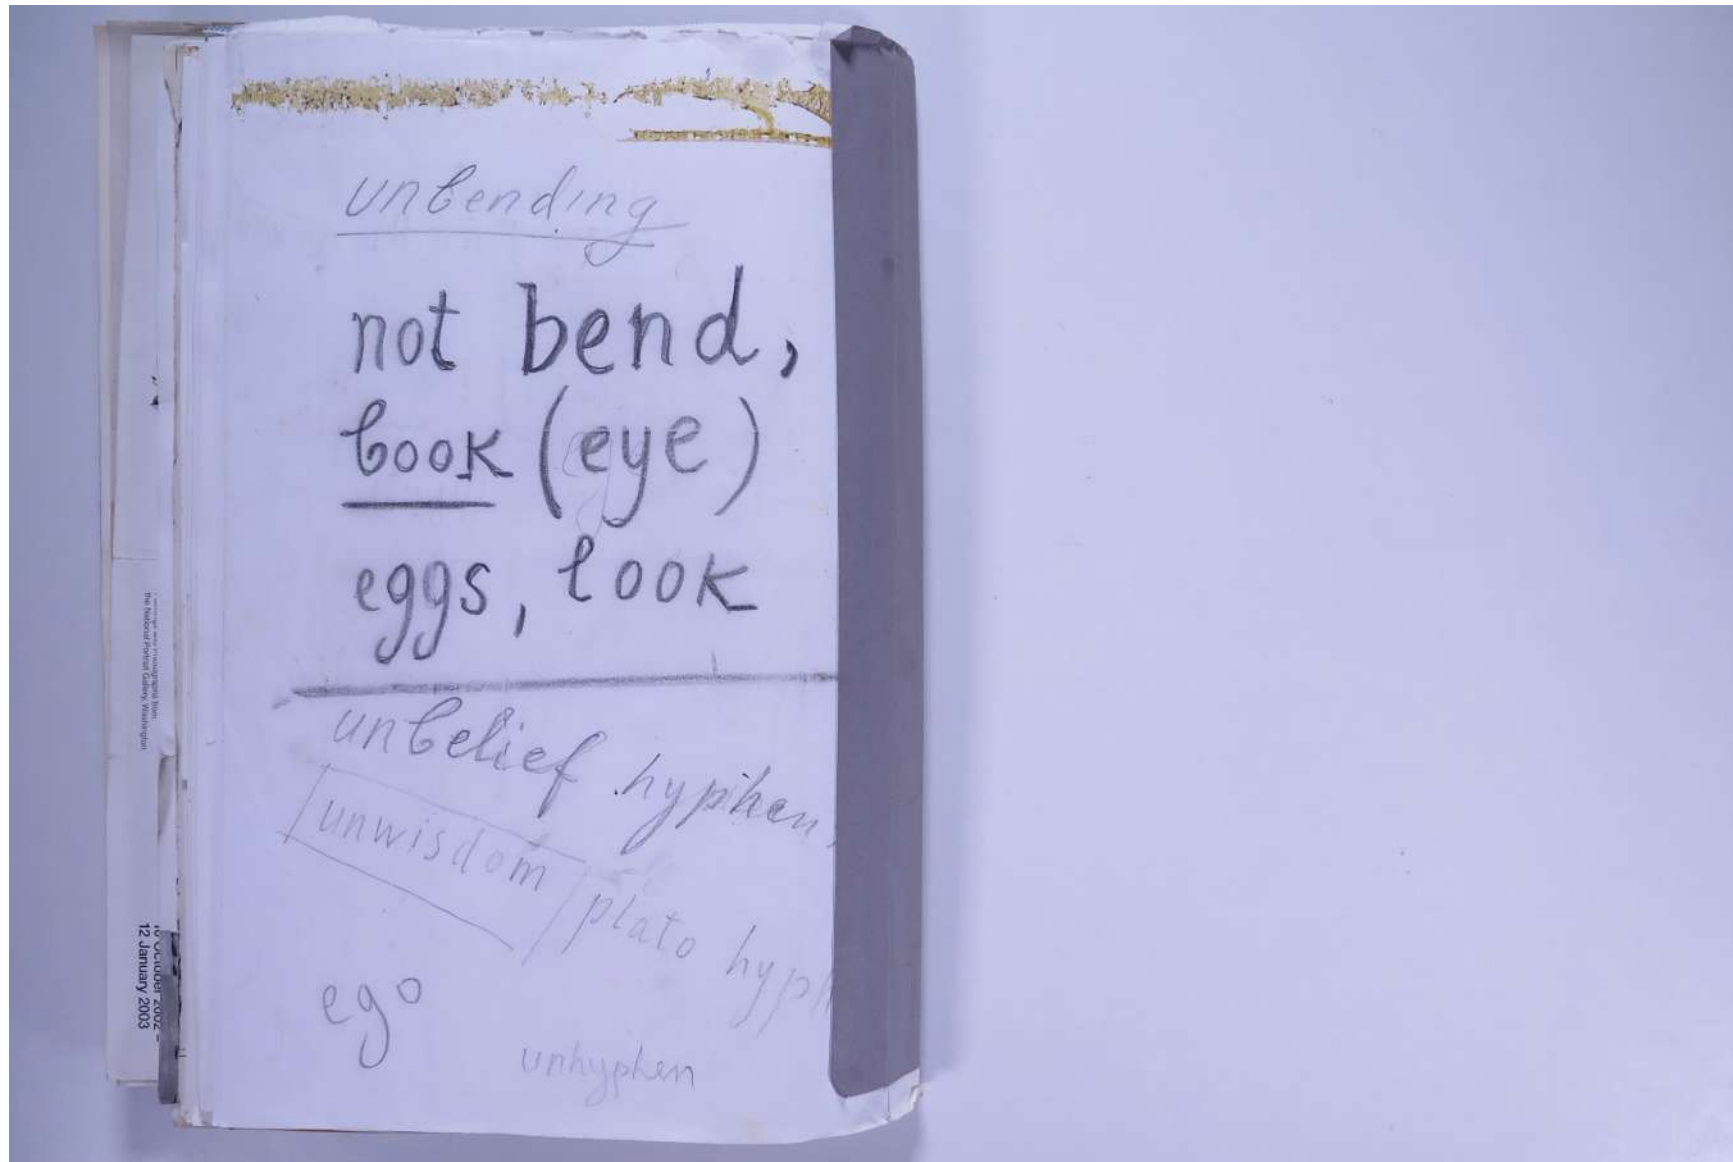 unbending
not bend,
book (eye)
eggs, look
unbelief hyphen,
unwisdom
plato hyph
ego
unhyphen
the National Portrait Gallery, Washington
10 October 2002 –
12 January 2003